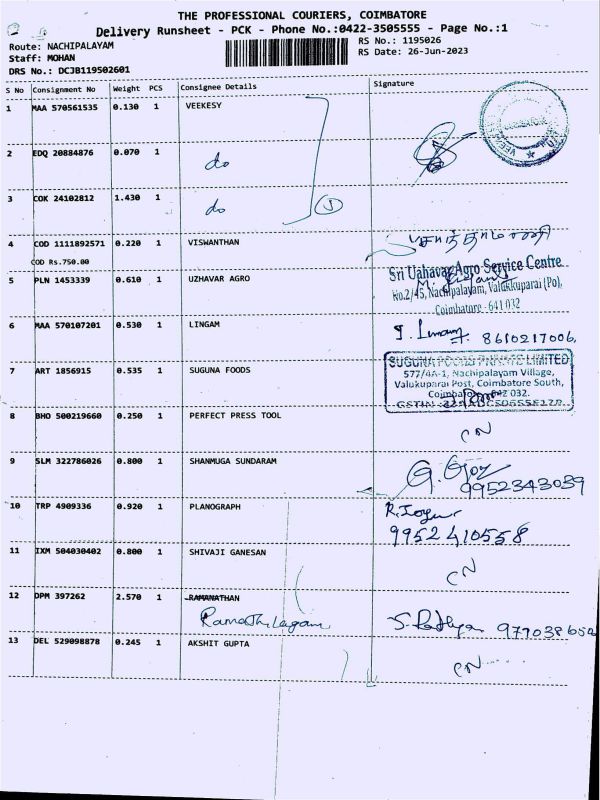 THE PROFESSIONAL COURIERS, COIMBATORE
Delivery Runsheet - PCK - Phone No.:0422-3505555 - Page No.:1
Route: NACHIPALAYAM
RS No.: 1195026
Staff: MOHAN
RS Date: 26-Jun-2023
DRS No.: DCJB119502601
S No Consignment No Weight PCS Consignee Details Signature
1 MAA 570561535 0.130 1 VEEKESY
2 EDQ 20884876 0.070 1 do
3 COK 24102812 1.430 1 do
4 COD 1111892571 0.220 1 VISWANTHAN
COD Rs.750.00
5 PLN 1453339 0.610 1 UZHAVAR AGRO
Sri Uzhavar Agro Service Centre
No.2/45, Nachipalayam, Valukkuparai (Po),
Coimbatore - 641 032
6 MAA 570107201 0.530 1 LINGAM 8610217006
7 ART 1856915 0.535 1 SUGUNA FOODS
SUGUNA FOODS PRIVATE LIMITED
577/4A-1, Nachipalayam Village,
Valukuparai Post, Coimbatore South,
8 BHO 500219660 0.250 1 PERFECT PRESS TOOL CN
9 SLM 322786026 0.800 1 SHANMUGA SUNDARAM
9952343039
10 TRP 4909336 0.920 1 PLANOGRAPH
9952410558
11 IXM 504030402 0.800 1 SHIVAJI GANESAN CN
12 DPM 397262 2.570 1 RAMANATHAN
Ramathilagam
13 DEL 529098878 0.245 1 AKSHIT GUPTA CN